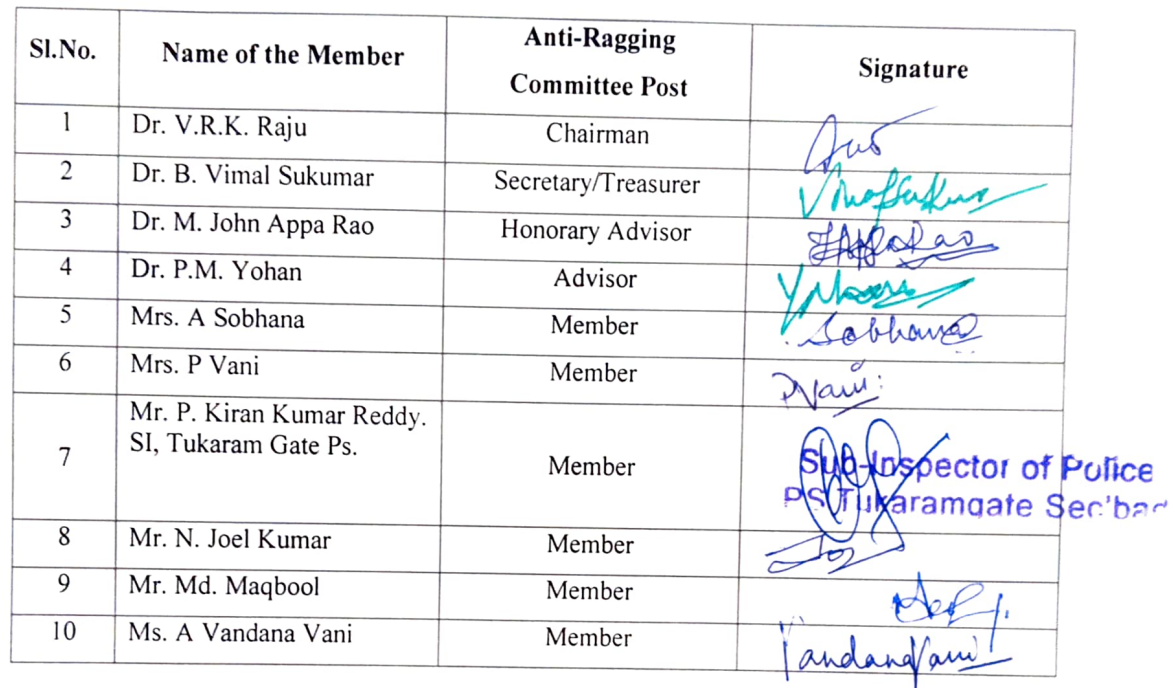 Sl.No. Name of the Member Anti-Ragging Committee Post Signature
1 Dr. V.R.K. Raju Chairman
2 Dr. B. Vimal Sukumar Secretary/Treasurer
3 Dr. M. John Appa Rao Honorary Advisor
4 Dr. P.M. Yohan Advisor
5 Mrs. A Sobhana Member Sobhana
6 Mrs. P Vani Member PVani
7 Mr. P. Kiran Kumar Reddy.
SI, Tukaram Gate Ps. Member
Sub-Inspector of Police
PS Tukaramgate Sec'bad
8 Mr. N. Joel Kumar Member
9 Mr. Md. Maqbool Member
10 Ms. A Vandana Vani Member VandanaVani